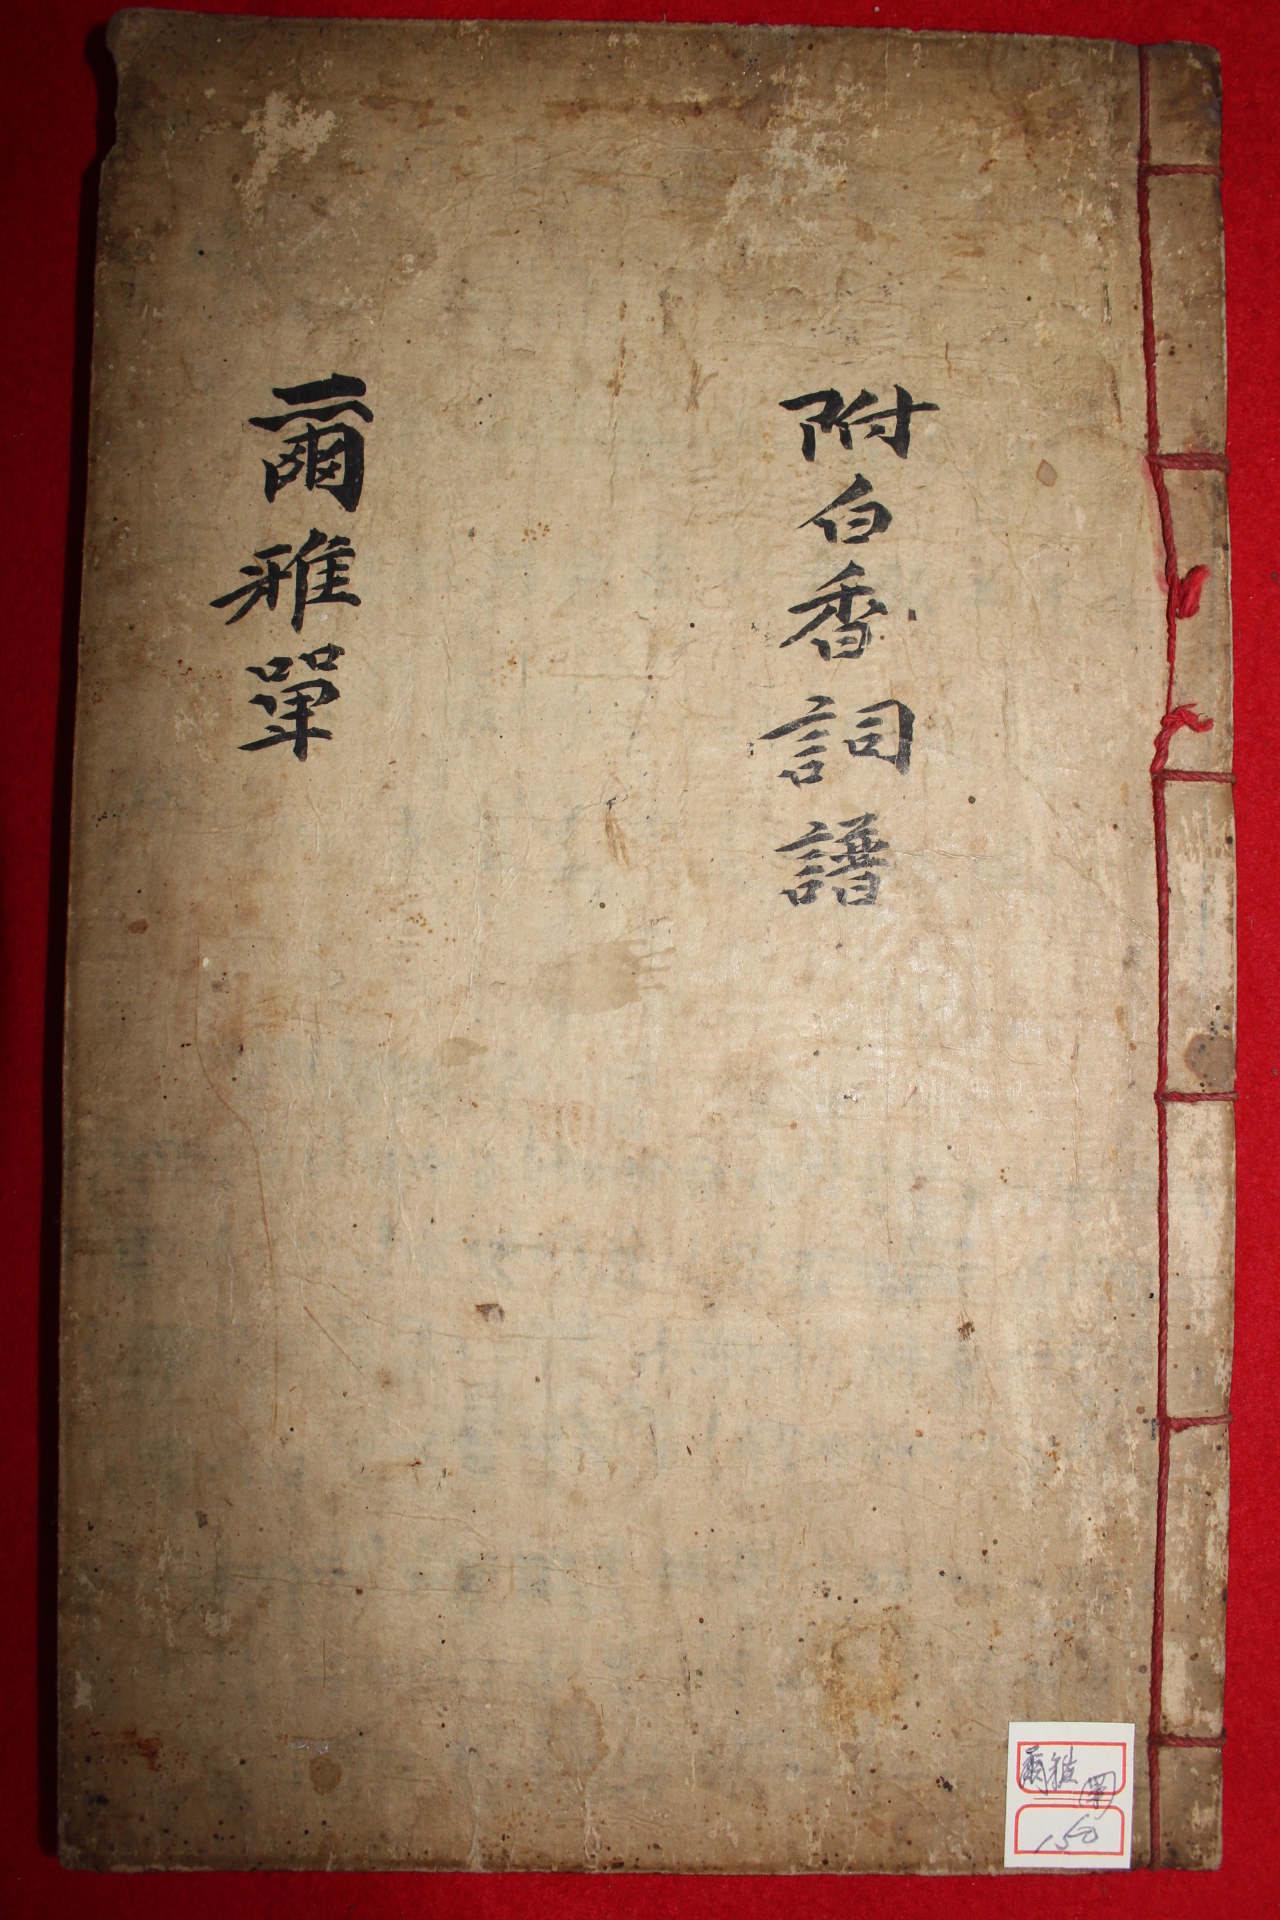 附白香詞譜
爾雅單
爾雅 單
150